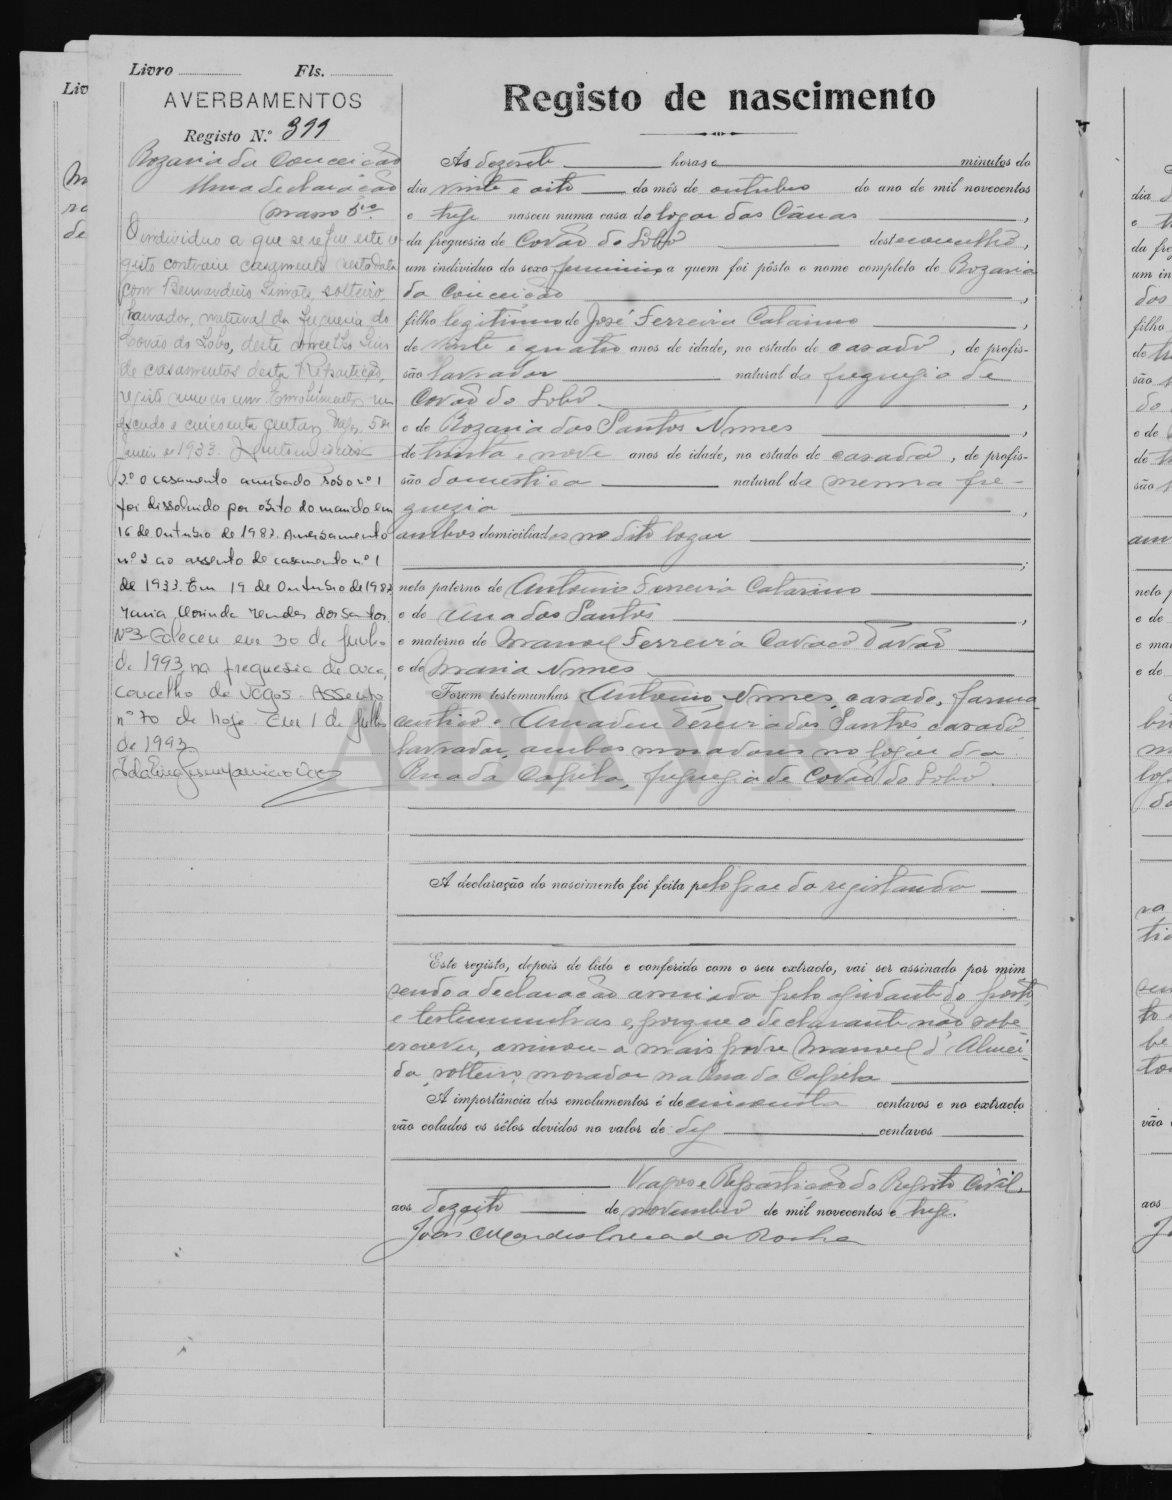 Livro Fls.
AVERBAMENTOS
Registo N.º 311
Rozaria da Conceição
Uma declaração
O individuo a que se refere este re
gisto contraiu casamento nesta data
com Bernardino Simões, solteiro,
lavrador, natural da freguesia do
Covão do Lobo, deste concelho
de casamentos desta Repartição,
registo numero um. Emolumentos um
escudo e cincoenta centavos. Vagos, 5 de
Janeiro de 1933.
2º O casamento averbado sob o nº 1
foi dissolvido por óbito do marido em
16 de Outubro de 1982. Averbamento
nº 2 ao assento de casamento nº 1
de 1933. Em 19 de Outubro de 1982
Maria Mendes dos Santos
Nº3- Faleceu em 30 de Junho
de 1993, na freguesia de
concelho de Vagos. Assento
nº 70 de hoje. Em 1 de Julho
de 1993
Registo de nascimento
Ás dezesete horas e minutos do
dia vinte e oito do mês de outubro do ano de mil novecentos
e treze nasceu numa casa do logar das Cânas,
da freguesia de Covão do Lobo deste concelho,
um individuo do sexo feminino a quem foi pôsto o nome completo de Rozaria
da Conceição,
filho legitimo de José Ferreira Catarino,
de vinte e quatro anos de idade, no estado de casado, de profis-
são lavrador natural da freguesia de
Covão do Lobo,
e de Rozaria dos Santos Nunes,
de trinta e nove anos de idade, no estado de casada, de profis-
são domestica natural da mesma fre-
guezia,
ambos domiciliados no dito logar
;
neto paterno de Antonio Ferreira Catarino
e de Ana dos Santos,
e materno de Manoel Ferreira Cavaco
e de Maria Nunes
Foram testemunhas Antonio Nunes, casado, farma
ceutico e Amadeu Pereira dos Santos, casado,
lavrador, ambos moradores no logar da
Rua da Capela, freguezia de Covão do Lobo.
A declaração do nascimento foi feita pelo pae do registando
Este registo, depois de lido e conferido com o seu extracto, vai ser assinado por mim
sendo a declaração assinada pelo ajudante do posto,
e testemunhas e, porque o declarante não sabe
escrever, assinou-a mais Manoel d'Almei-
da, solteiro, morador na Rua da Capela
A importância dos emolumentos é de cincoenta centavos e no extracto
vão colados os sêlos devidos no valor de dez centavos
Vagos e Repartição do Registo Civil,
aos dezoito de novembro de mil novecentos e treze.
João Mendes Correia da Rocha
ADAVR